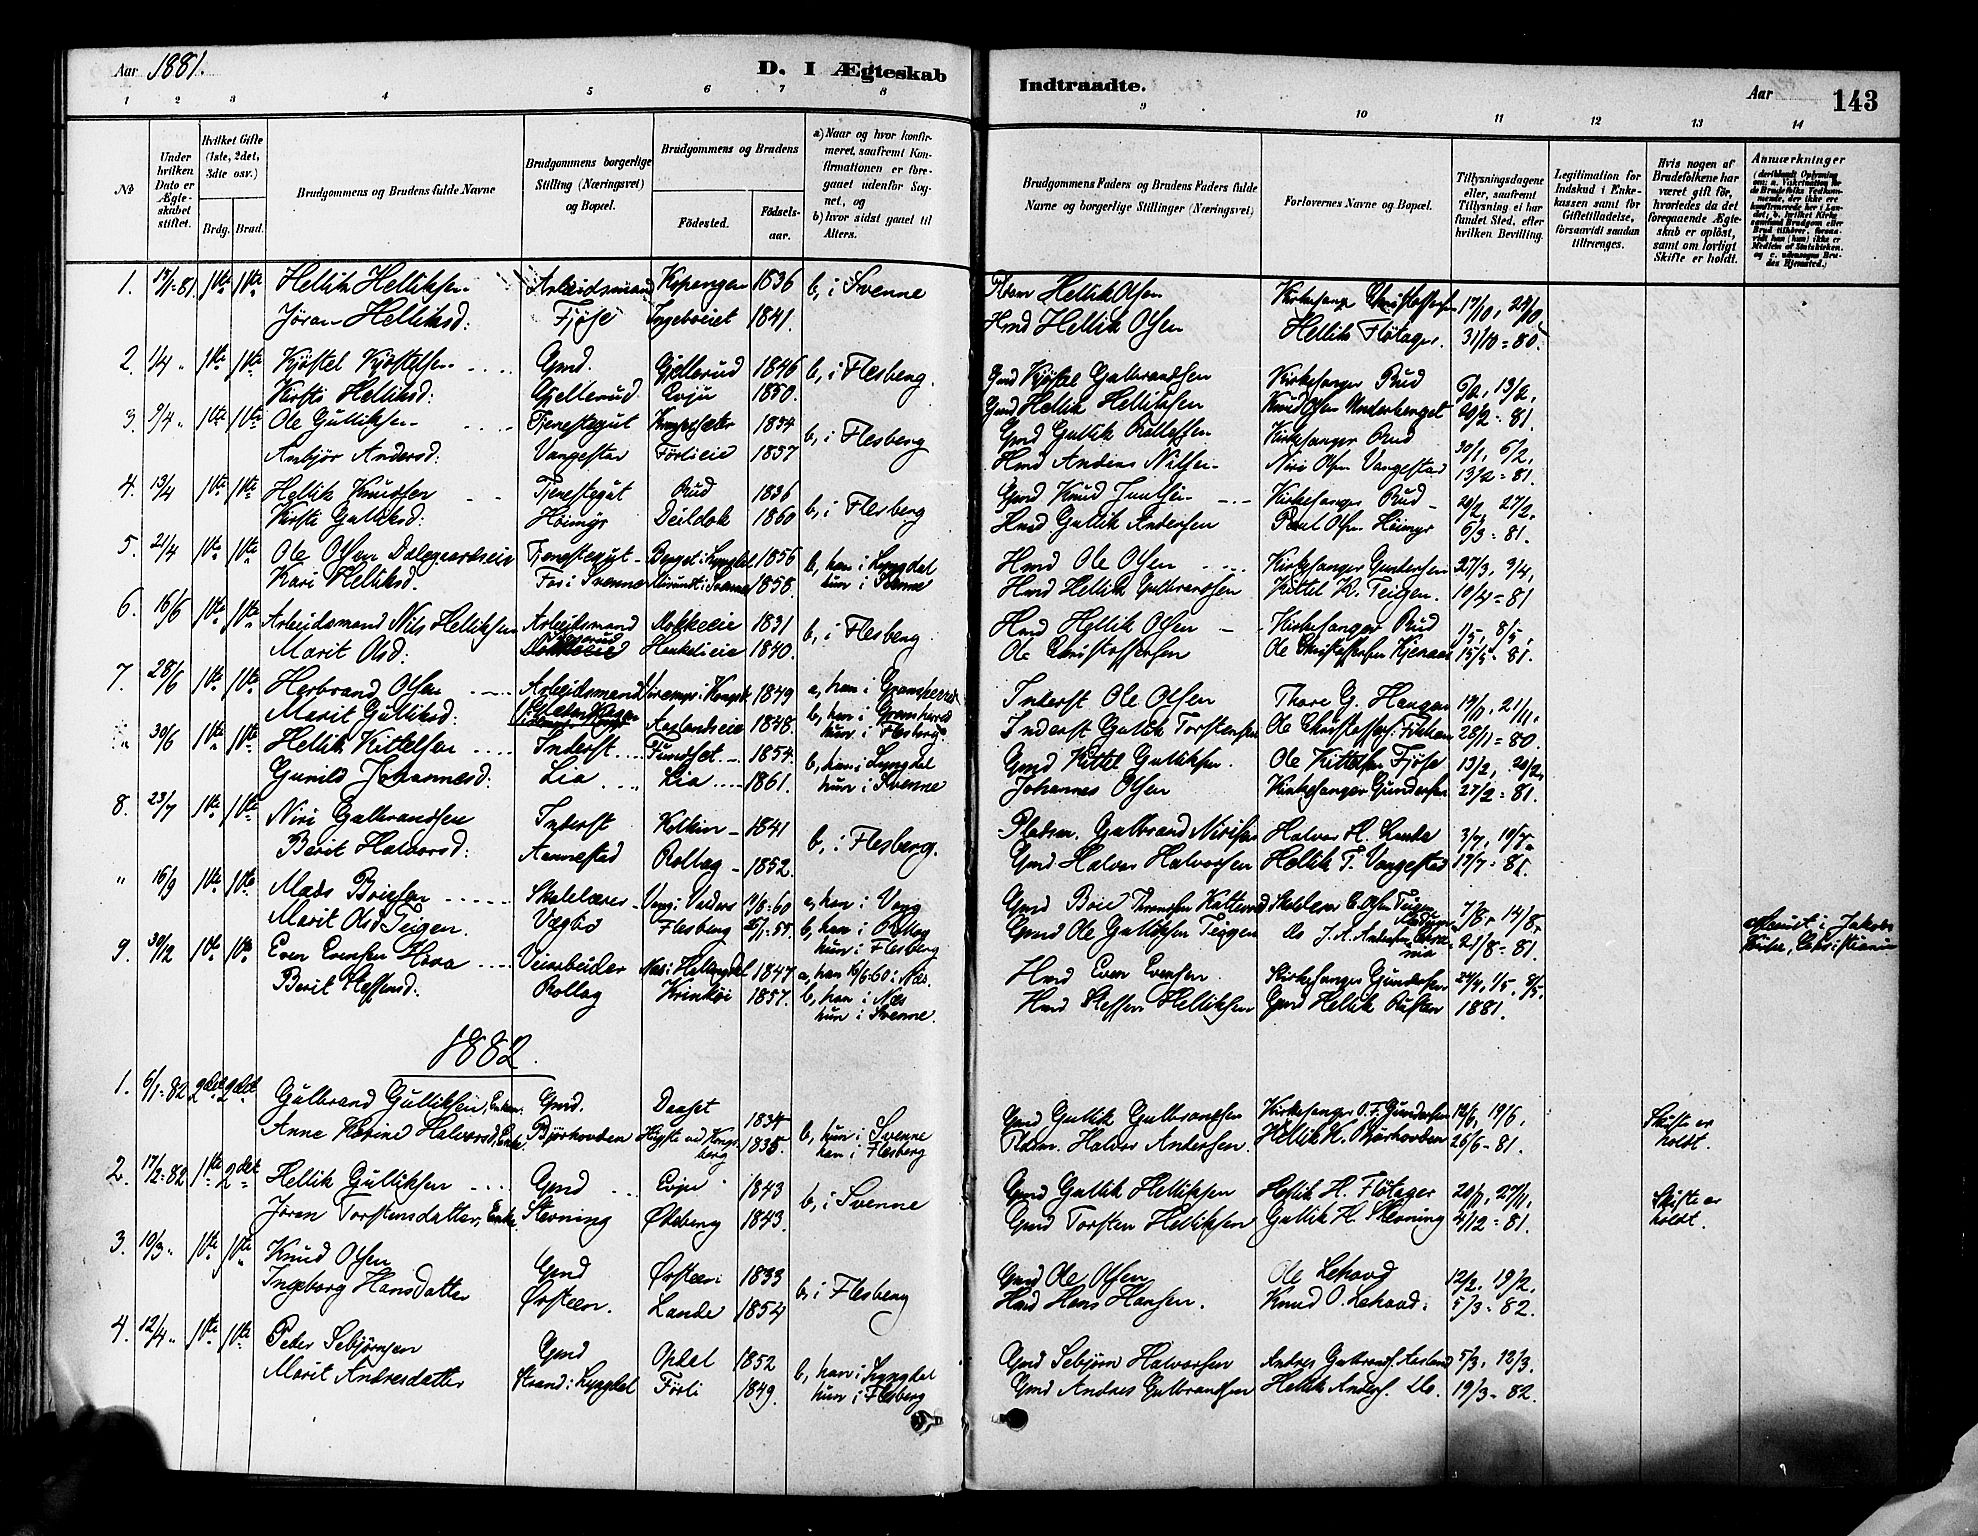 Aar 1881.
D. I Ægteskab
Indtraadte.
Aar
143
1 2 3 4 5 6 7 8 9 10 11 12 13 14
No
Under hvilken Dato er Ægteskabet stiftet.
Hvilket Gifte (1ste, 2det, 3die osv.)
Brdg. Brud.
Brudgommens og Brudens fulde Navne
Brudgommens borgerlige Stilling (Næringsvei) og Bopæl.
Brudgommens og Brudens
Fødested. Fødselsaar.
a) Naar og hvor konfirmeret, saafremt Konfirmationen er foregaaet udenfor Sognet, og
b) hvor sidst gaaet til Alters.
Brudgommens Faders og Brudens Faders fulde Navne og borgerlige Stillinger (Næringsvei)
Forlovernes Navne og Bopæl.
Tillysningsdagene eller, saafremt Tillysning ei har fundet Sted, efter hvilken Bevilling.
Legitimation for Indskud i Enkekassen samt for Giftetilladelse, forsaavidt saadan tiltrænges.
Hvis nogen af Brudefolkene har været gift før, hvorledes da det foregaaende Ægteskab er opløst, samt om lovligt Skifte er holdt.
Anmærkninger
1. 17/1-81 1ste 1ste Hellik Helliksen Arbeidsmand Kopengen 1836 b, i Svenne Hellik Olsen 17/10, 24/10
Jøran Helliksd: Fjøse Ingeboeiet 1841. Hmd Hellik Olsen Hellik Fløtager. 31/10-80.
2. 1/4 " 1ste 1ste Kjøstel Kjøstelsen Gmd. Gjellerud 1846 b, i Flesberg. Gmd Kjøstel Gulbrandsen Kirkesanger Rud 6/2, 13/2,
Kirsti Helliksd: Gjellerud Evju 1850. Gmd Hellik Helliksen Knud Olsen Underberget 20/2-81.
3. 9/4 " 1ste 1ste Ole Gulliksen Tjenestegut 1834 b, i Flesberg Gmd Gullik Kirkesanger Rud 30/1, 6/2,
Anbjør Andersd: Vangestad Førlieie 1837 Hmd Anders Nilsen Niri Olsen Vangestad 13/2-81.
4. 13/4 1ste 1ste Hellik Knudsen Tjenestegut Rud 1836 b, i Flesberg Gmd Knud Juulsen Kirkesanger Rud 20/2, 27/2,
Kirsti Gulliksd: Høimyr Deildok 1860 Hmd Gullik Andersen Paul Olsen Høimyr 6/3-81.
5. 21/4 1ste 1ste Ole Olsen Dalegaardseie Tjenestegut Berget i Lyngdal 1856 b, han i Lyngdal Hmd Ole Olsen Kirkesanger Gundersen 27/3, 3/4,
Kari Helliksd. Fos i Svenne 1858. hun i Svenne Hmd Hellik Gulbrandsen Kittel K. Teigen. 10/4-81
6. 16/6 1ste 1ste Arbeidsmand Nils Helliksen Arbeidsmand Dokkeeie 1831 b, i Flesberg Hmd Hellik Olsen Kirkesanger Rud 1/5, 8/5,
Marit Olsd: Henkelieie 1840. Ole Christoffersen Ole Christoffersen Kjenaas 15/5-81.
7. 28/6 1ste 1ste Herbrand Olsen Arbeidsmand 1849 a, han i Gransherred Inderst Ole Olsen Thore G. Haugen 14/11, 21/11,
Marit Gulliksd: Aaslandseie 1848. b, han i Gransherred hun i Flesberg. Inderst Gullik Torstensen Ole Christoffers. 28/11-80.
" 30/6 1ste 1ste Hellik Kittelsen Inderst Tundset 1854. b, han i Lyngdal Gmd Kittel Gulliksen. Ole Kittelsen Fjøse 13/2, 20/2,
Gunild Johannesd: Lia Lia 1861. hun i Svenne Johannes Olsen Kirkesanger Gundersen 27/2-81.
8. 23/7 1ste 1ste Niri Gulbrandsen Inderst 1841 b, i Flesberg. Pladsm. Gulbrand Nirisen Halvor H. Lande 3/7, 10/7,
Berit Halvorsd: Aannestad Rollag 1852. Gmd Halvor Halvorsen Hellik T. Vangestad 17/7-81.
" 16/9 1ste 1ste Mads Boiesen Skolelærer Vang i Valders 11/8-60 a, han i Vang Gmd Boie 7/8, 14/8,
Marit Olsd Teigen. Flesberg b, han i hun i Flesberg Gmd Ole Gulliksen Teigen J. A. Andersen 21/8-81. i Jakobs Kirke, Christiania
9. 30/12 1ste 1ste Even Evensen Hova Veiarbeider Næs i Hallingdal 1847 a, han 16/6 60 i Næs. Hmd Even Evensen Kirkesanger Gundersen 24/4, 1/5, 8/5.
Berit Steffensd: Rollag 1857. b, han i Næs hun i Svenne. Hmd Steffen Helliksen Gmd Hellik Rusten 1881.
1882.
1. 6/1-82 2det 2det Gulbrand Gulliksen, Enkem. Gmd. Daaset 1834 b, hun i Svenne Gmd Gullik Gulbrandsen Kirkesanger O. F. Gundersen 12/6, 19/6, Skifte er
Anne Karine Halvorsd, Enke. Bjørkhovden ved Kongsberg 1835. han i Flesberg Pladsm. Halvor Andersen. Hellik K. Bjørhovden 26/6-81. holdt.
2. 17/2-82 1ste 2det Hellik Gulliksen Gmd Evju 1843 b, i Svenne Gmd Gullik Helliksen Hellik H. Fløtager 20/11, 27/11, Skifte er
Jøran Torstensdatter, Enke Stevning Ødeberg 1843. Gmd Torsten Helliksen Gullik H. Stevning 4/12-81. holdt.
3. 19/3 " 1ste 1ste Knud Olsen Gmd 1833 b, i Flesberg Gmd Ole Olsen Ole Lehovd 12/2, 19/2,
Ingeborg Hansdatter Ørsteen. Lande 1854 Hmd Hans Hansen. Knud O. Lehovd. 5/3-82.
4. 12/4 " 1ste 1ste Peder Sebjørnsen Gmd Opdal 1852 b, han i Lyngdal Gmd Sebjørn Halvorsen Andres Gulbrands. Aasland 5/3, 12/3.
Marit Andresdatter Strand i Lyngdal Førli 1849. hun i Flesberg Gmd Andres Gulbrandsen Hellik Anders. Do. 19/3-82.